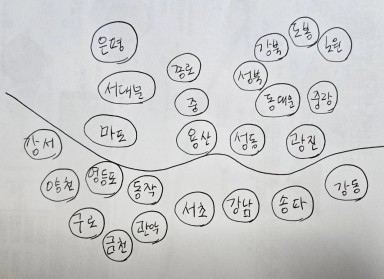 은평
서대문
마포
종로
중
용산
강북
도봉
노원
성북
동대문
중랑
성동
광진
강서
양천
영등포
동작
구로
금천
관악
서초
강남
송파
강동